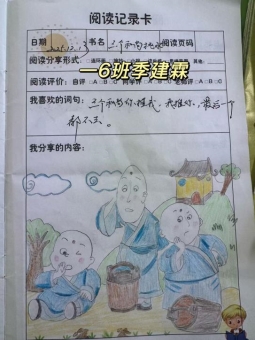 阅读记录卡
日期 书名 三个和尚挑水 阅读页码
一6班季建霖
阅读分享形式：
阅读评价：自评 A B C 同学评 A B C 老师评
我喜欢的词句：三个和尚你推我，我推你，最后一个
都不去。
我分享的内容：